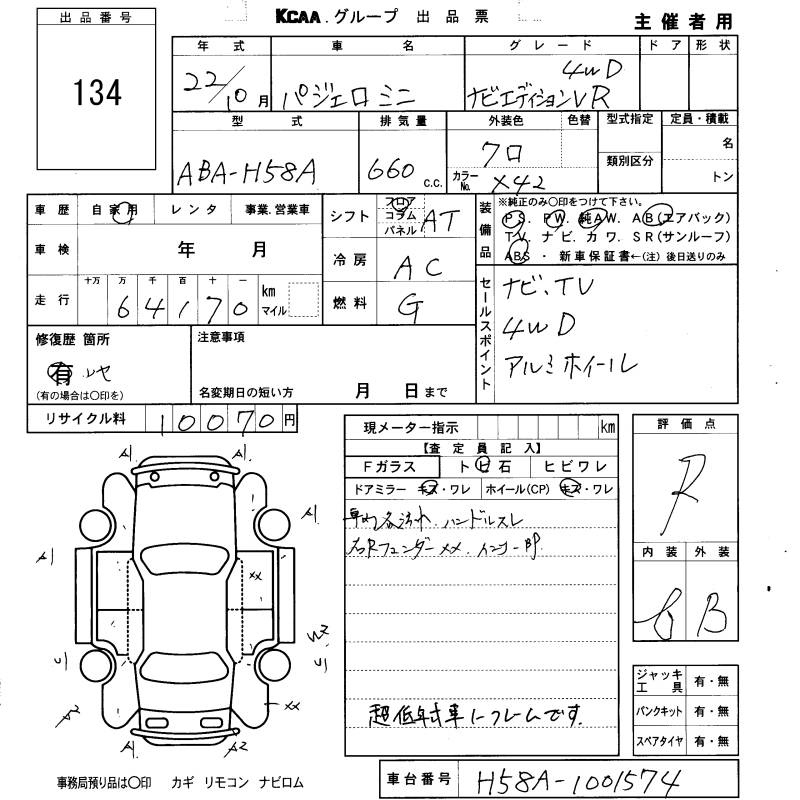 出品番号
134
KCAA.グループ 出品票
主催者用
年式 車名 グレード ドア 形状
22/10月 パジェロミニ 4WD
ナビエディションVR
型式 排気量 外装色 色替 型式指定 定員・積載
ABA-H58A 660 c.c. クロ 類別区分 名
カラーNo. X42 トン
車歴 自家用 レンタ 事業.営業車
車検 年 月
走行 十万 万 千 百 十 一 km マイル
64170
シフト フロア コラム パネル AT
冷房 AC
燃料 G
装備品 ※純正のみ〇印をつけて下さい。
PS. PW. 純AW. AB(エアバック)
TV. ナビ. カワ. SR(サンルーフ)
ABS ・ 新車保証書←(注) 後日送りのみ
セールスポイント
ナビ、TV
4WD
アルミホイール
修復歴 箇所
有
(有の場合は〇印を)
注意事項
名変期日の短い方 月 日まで
リサイクル料 10070円
現メーター指示 km
【査定員記入】
Fガラス トビ石 ヒビワレ
ドアミラー キズ・ワレ ホイール(CP) キズ・ワレ
ハンドルスレ
フェンダーXX.
超低年式車 フレームです.
評価点
R
内装 外装
B
ジャッキ工具 有・無
パンクキット 有・無
スペアタイヤ 有・無
A1 A1
A1
A1
XX
U1
U1
A2
XX
A1 A2
事務局預り品は〇印 カギ リモコン ナビロム
車台番号 H58A-1001574